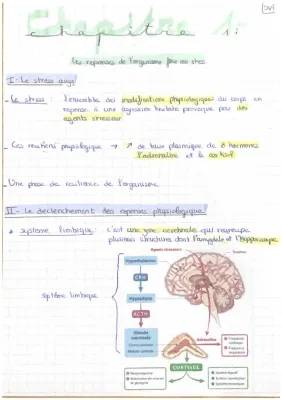 Chapitre 1:
chapitre 1:
Les reponses de l'organisme face au stress
I - Le stress aigu
- Le stress : l'ensemble des modifications physiologiques du corps en
reponse à une agression brutale provoquée par des
agents stresseur
- Ces reactions physiologique → ↗ de taux plasmique de 2 hormones
l'adrenaline et le cortisol
- Une phase de resilience de l'organisme
II - Le declenchement des reponses physiologique
• systeme limbique : c'est une zone cerebrale qui regroupe
plusieurs structures dont l'amygdale et l'hippocampe
Agents stresseurs
Hypothalamus
CRH
Hypophyse
ACTH
systeme limbique
Glande
surrénale
Adrénaline
CORTISOL